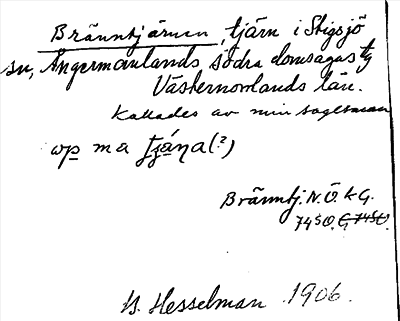 Bränntjärnen, tjärn i Stigsjö
sn, Ångermanlands södra domsagas tg
Västernorrlands län.
Kallades av min sagesman
Bränntj. N.Ö. k G.
74 SV. G 74 SV.
B. Hesselman 1906.